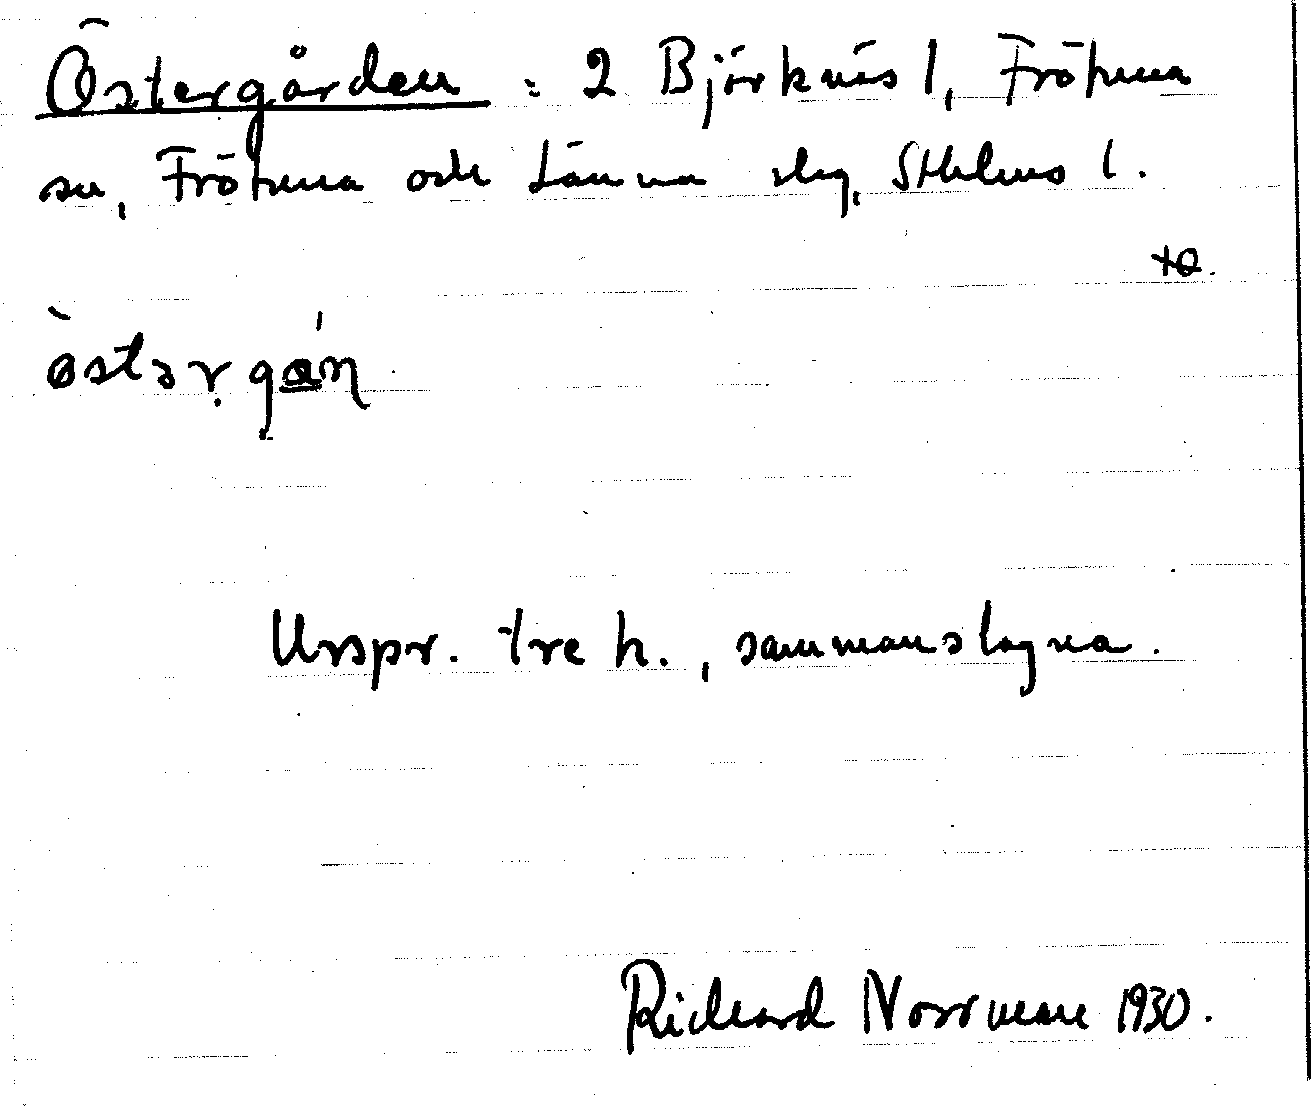 Östergården : 2 Björknäs 1, Frötuna
sn, Frötuna och Länna skg, Sthlms l.
östərgan
Urspr. tre h., sammanslagna.
Rickard Norrman 1930.